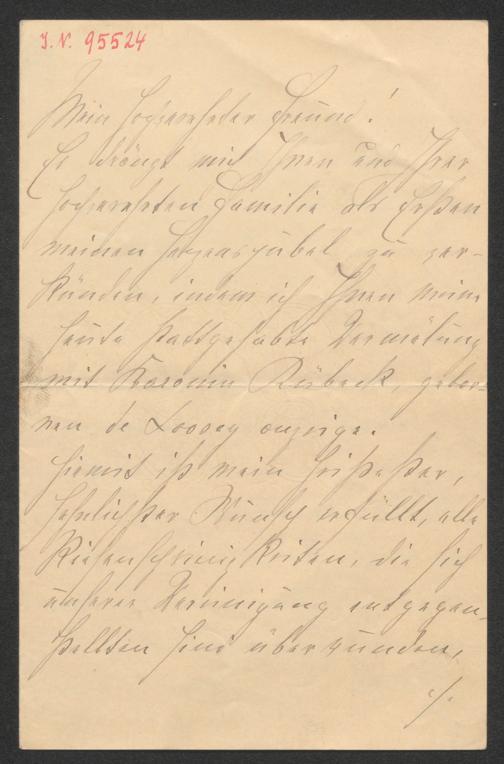 I. N. 95524
Mein hochverehrter Freund!
Es drängt mich Ihnen und Ihrer
hochverehrten Familie als Ersten
meinen Herzensjubel zu ver-
künden, indem ich Ihnen meine
heute stattgehabte Vermälung
mit Baronin Rübeck, gebor-
nen de anzeige.
Hiemit ist mein heißester,
sehnlichster Wunsch erfüllt, alle
Riesenschwierigkeiten, die sich
unserer Vereinigung entgegen-
stellten sind überwunden,
./.